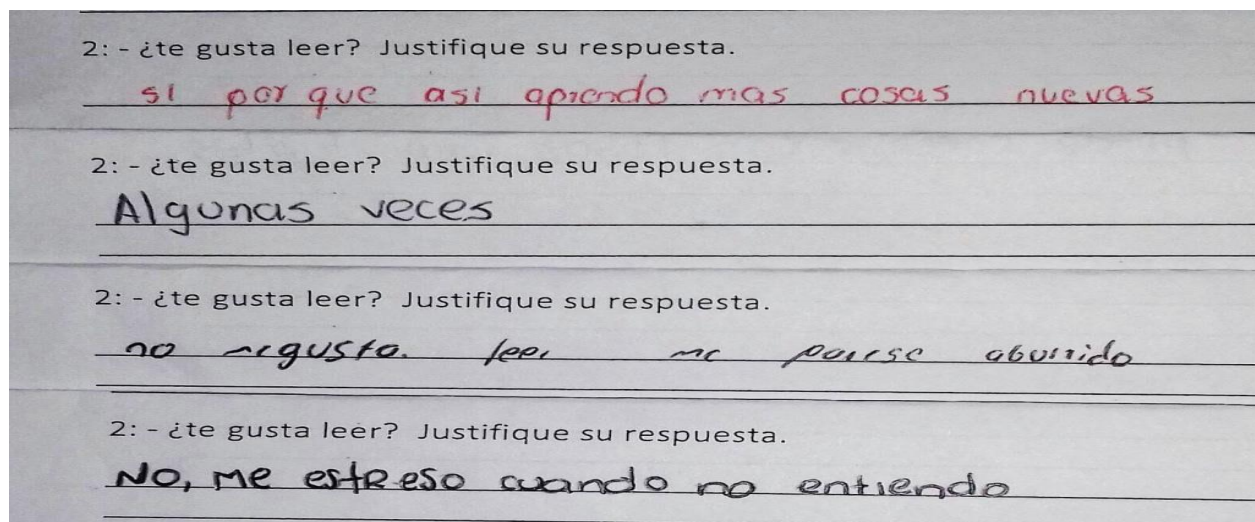 2: - ¿te gusta leer? Justifique su respuesta.
si por que asi aprendo mas cosas nuevas
2: - ¿te gusta leer? Justifique su respuesta.
Algunas veces
2: - ¿te gusta leer? Justifique su respuesta.
no megusta. leer me parese aburrido
2: - ¿te gusta leer? Justifique su respuesta.
NO, Me estreso cuando no entiendo